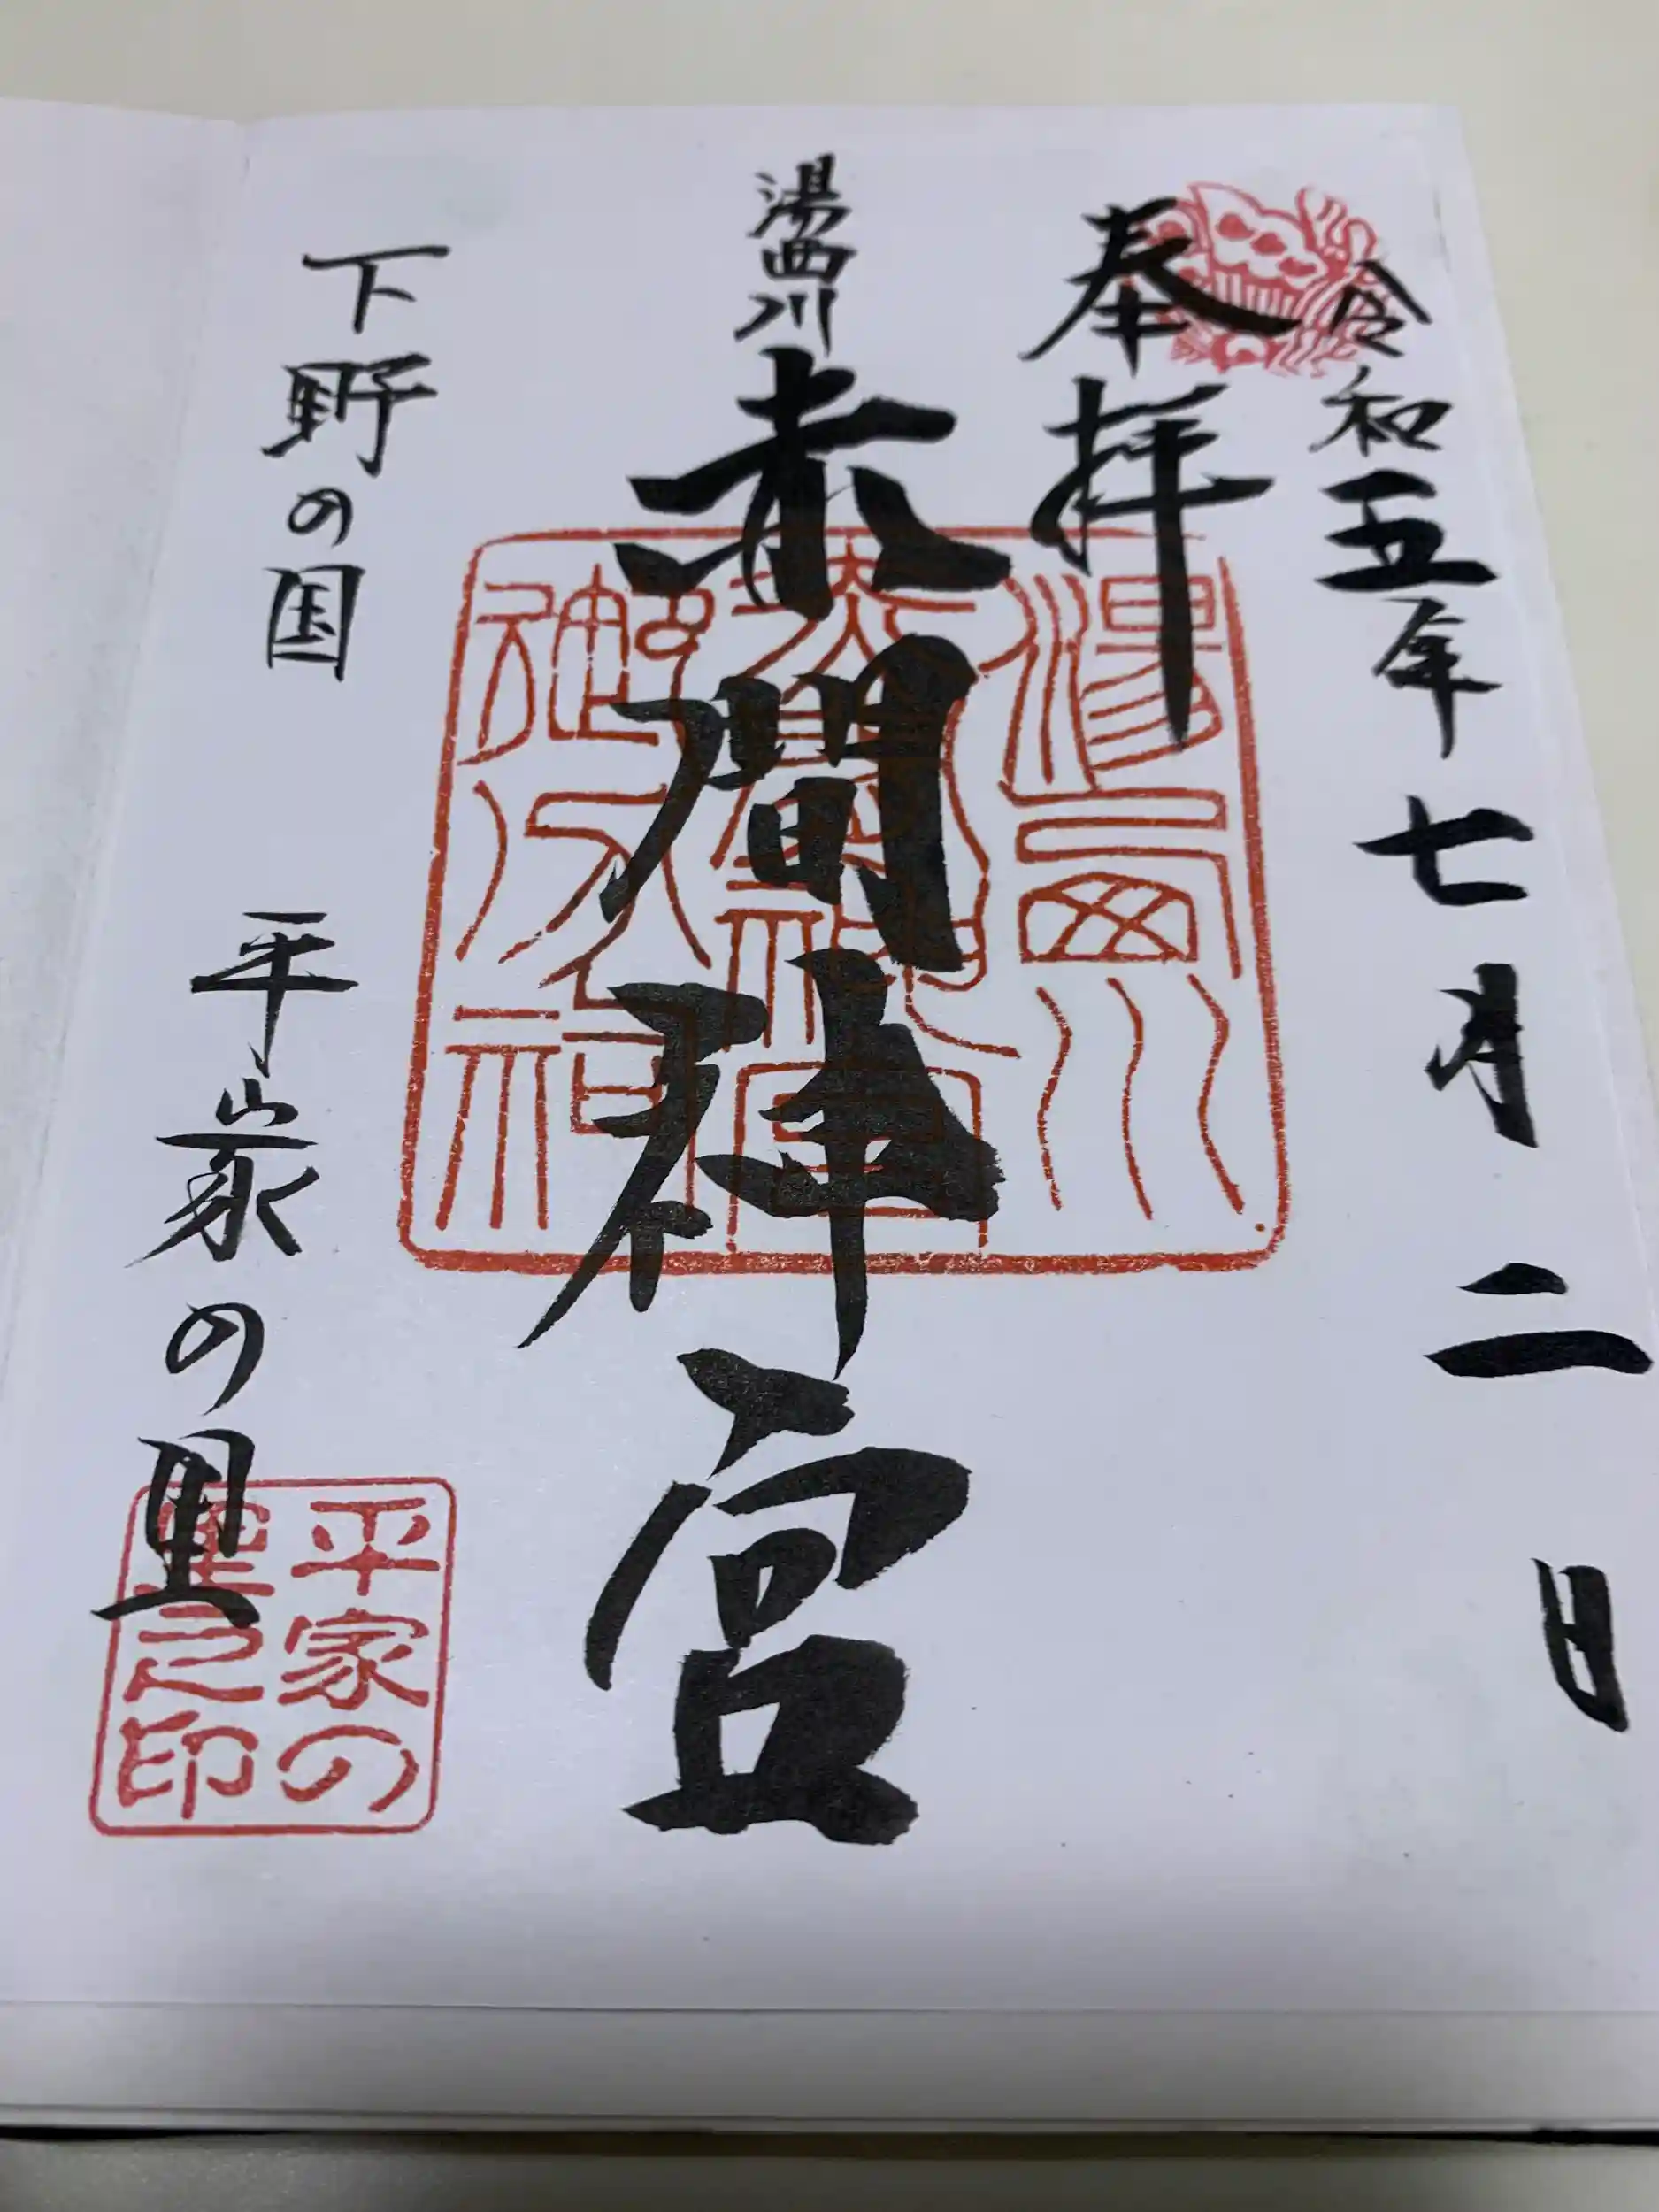 令和五年七月二日
奉拝
湯西川
赤間神宮
下野の国 平家の里
湯西川
赤間神宮
御分祠
平家の
里之印